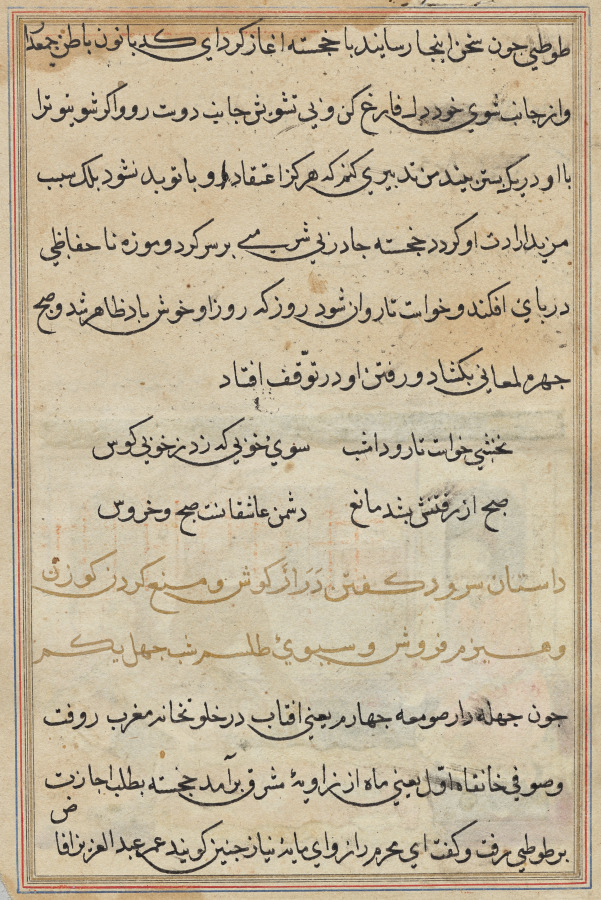 طوطی چون سخن اینجا رسانید با خجسته اغاز کرد ای کدبانو باطن جمعدار
واز جانب شوی خود دل فارغ کن و بی تشویش جانب دوست رو و اکر شوی تو ترا
با او در یک بستر بیند من تدبیری کنم که هرکز اعتقاد او با تو بد نشود بلک سبب
مزید ارادت او کردد خجسته چادر بی شرمی بر سر کرد و موزه نا حفاظی
در پای افکند و خواست تا روان شود روز که روز او خوش باد ظاهر شد و صبح
چهره لمعانی بکشاد و رفتن او در توقف افتاد
نخشبی خواست تا رود امشب سوی خوبی که زد ز خوبی کوس
صبح از رفتنش بشد مانع دشمن عاشقانست صبح و خروس
داستان سرود کفتن درازکوش و منع کردن کوزن
و هیزم فروش و سبوی طلسم شب چهل یکم
چون چهله دار صومعه چهارم یعنی افتاب در خلوتخانه مغرب رفت
وصوفی خانقاه اول یعنی ماه از زاویهٔ مشرق برآمد خجسته بطلب اجازت
بر طوطی رفت و کفت ای محرم راز و ای مایهٔ نیاز چنین کویند عمر عبد العزیز را